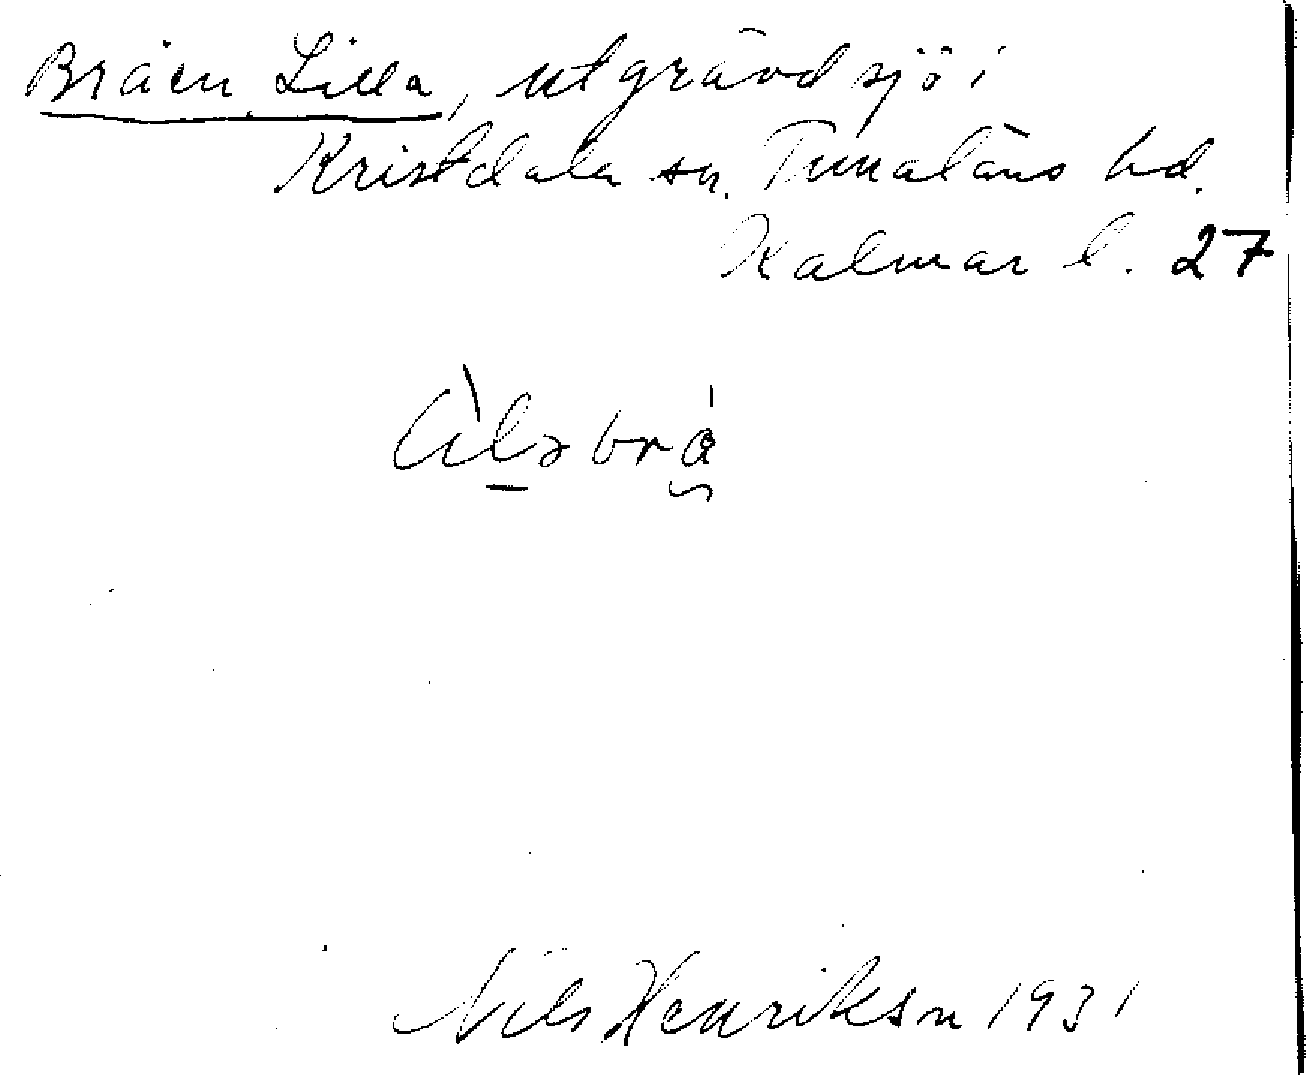 Bråen Lilla, utgrävd sjö i
Kristdala sn. Tunaläns hd.
Kalmar l. 27
Nils Henriksn 1931